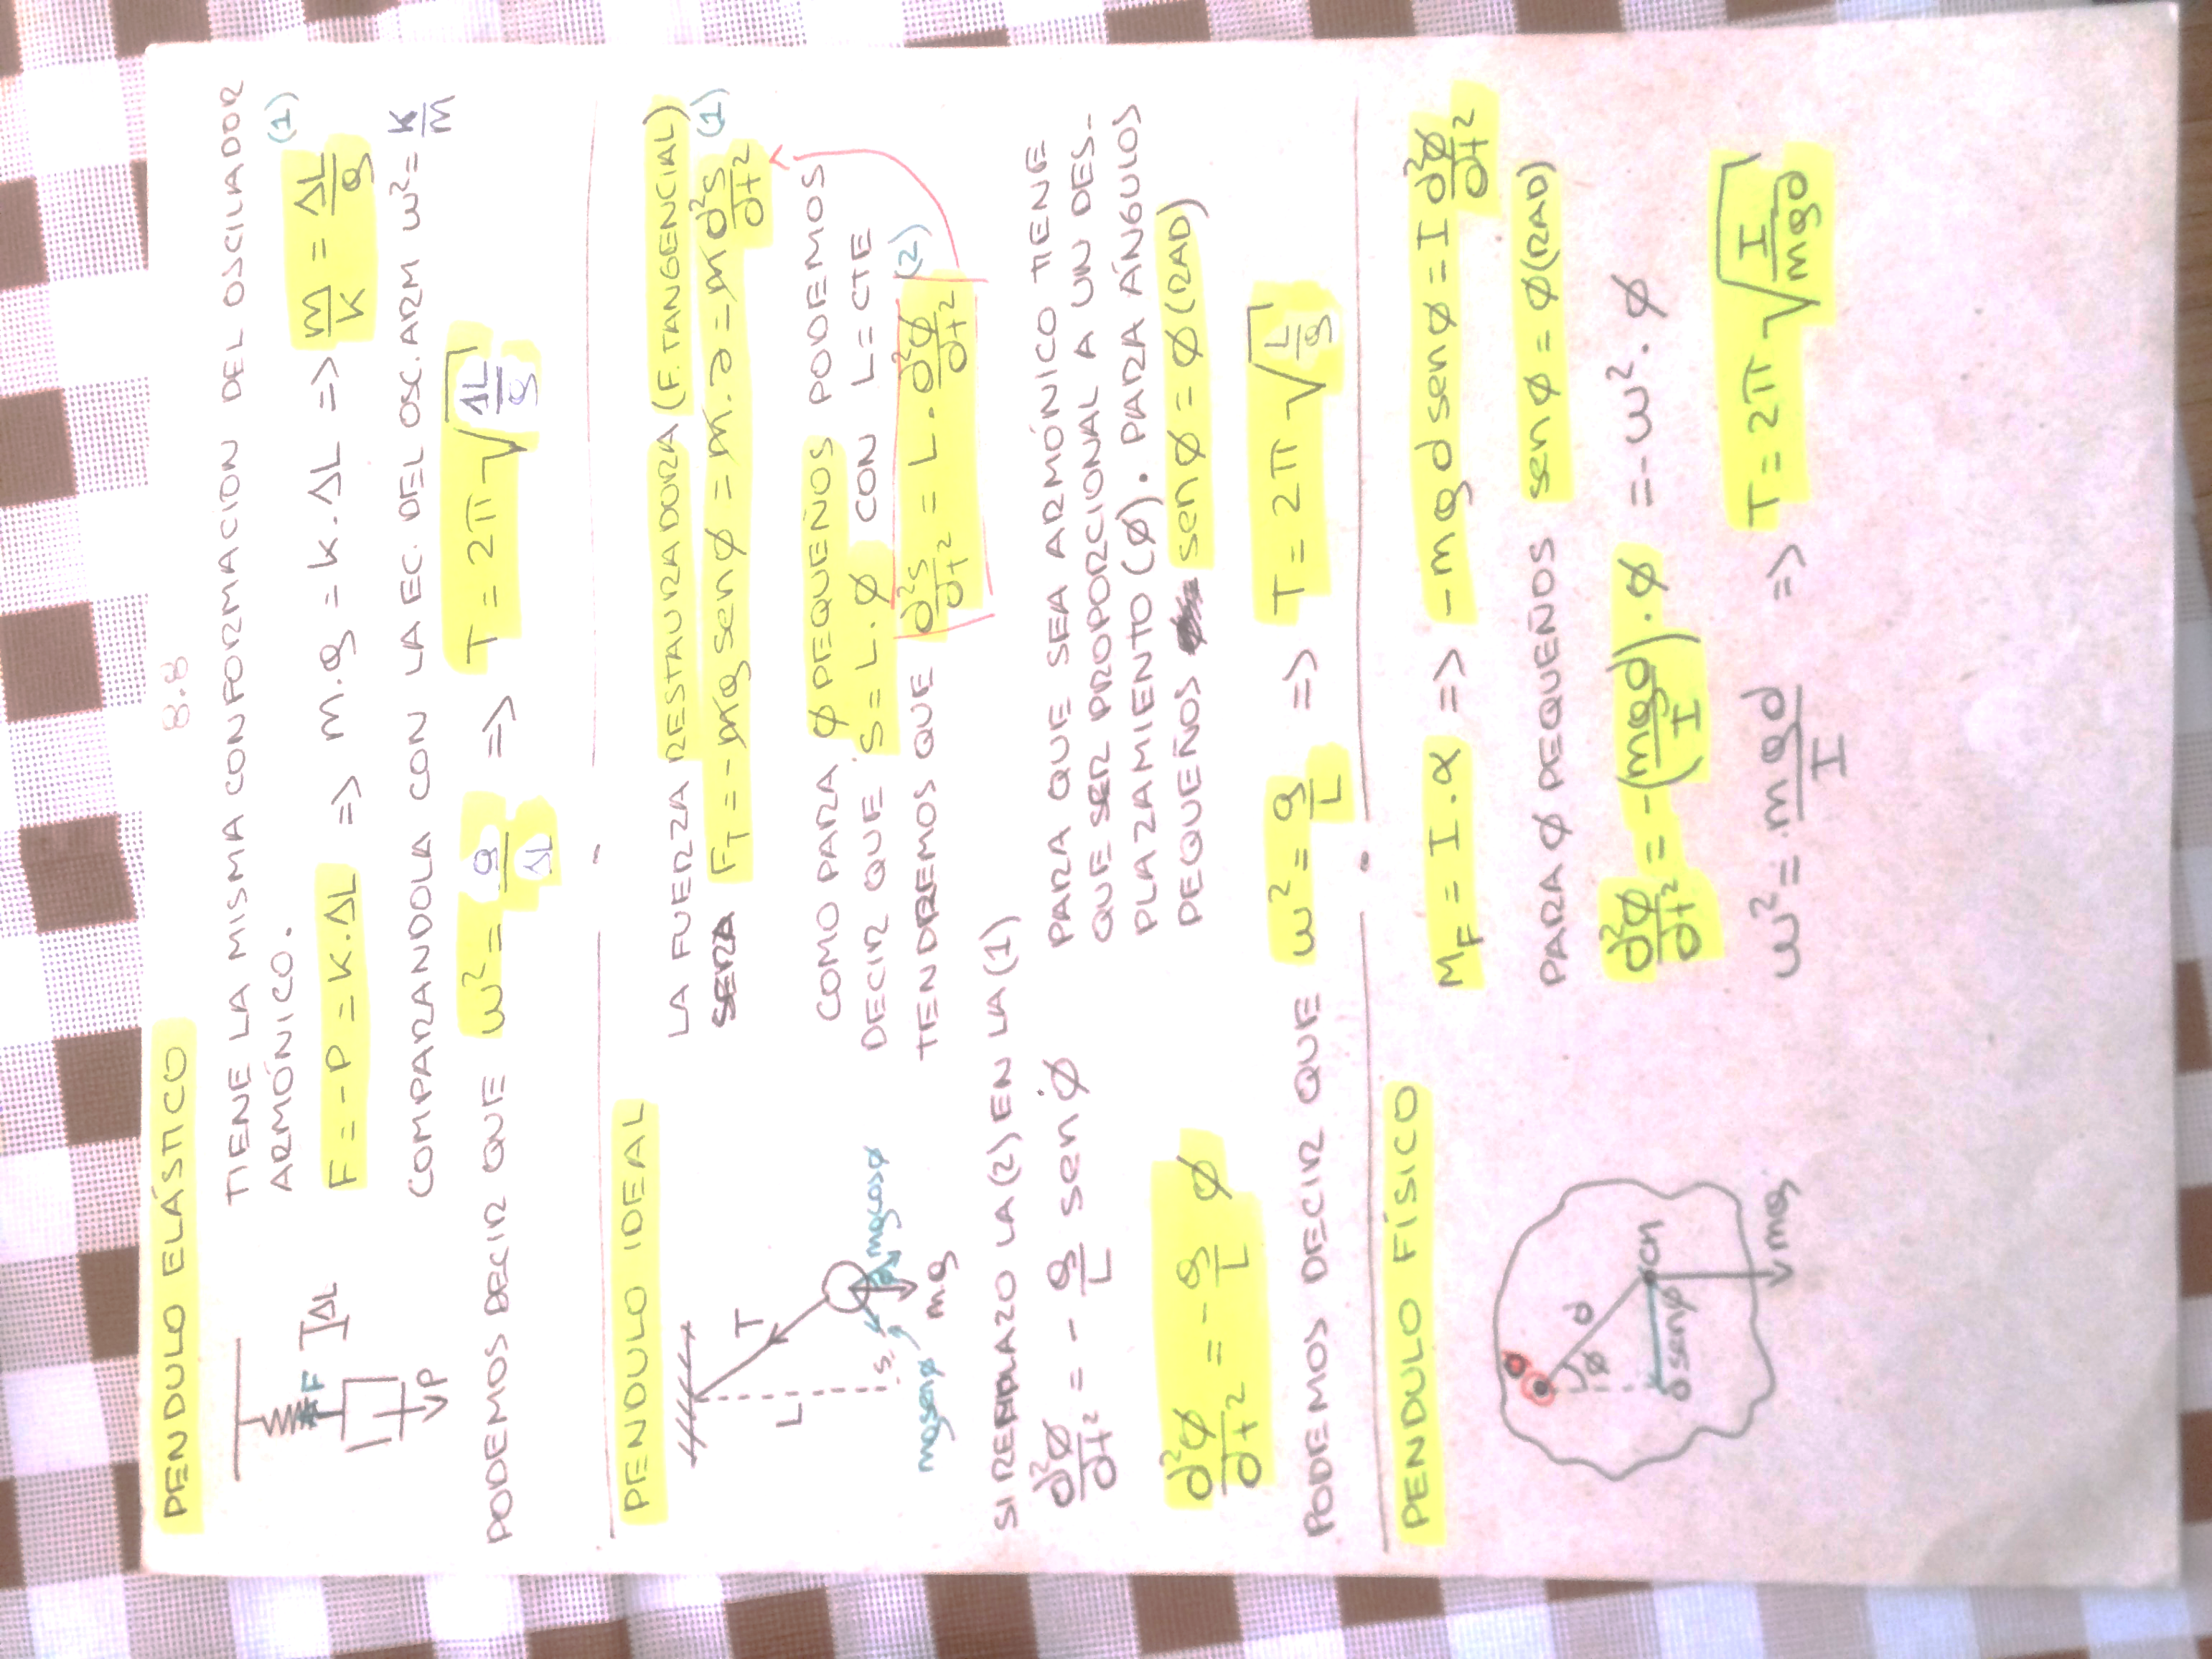 8.8
PENDULO ELÁSTICO
TIENE LA MISMA CONFORMACION DEL OSCILADOR
ARMÓNICO.
F ΔL
P
F = - P = K.ΔL => m.g = k.ΔL => m/K = ΔL/g (1)
COMPARANDOLA CON LA EC. DEL OSC.ARM ω² = K/m
PODEMOS DECIR QUE ω² = g/ΔL => T = 2π √(ΔL/g)
PENDULO IDEAL
LA FUERZA RESTAURADORA (F.TANGENCIAL)
SERA F_T = - mg sen ø = m.a = m d²s/dt² (1)
L T
s
mg senø mg cosø
mg
COMO PARA ø PEQUEÑOS PODEMOS
DECIR QUE S = L.ø CON L = CTE
TENDREMOS QUE d²s/dt² = L . d²ø/dt² (2)
SI REEMPLAZO LA (2) EN LA (1)
d²ø/dt² = - g/L sen ø
PARA QUE SEA ARMÓNICO TIENE
QUE SER PROPORCIONAL A UN DES-
PLAZAMIENTO (ø). PARA ÁNGULOS
PEQUEÑOS sen ø = ø (RAD)
d²ø/dt² = - g/L ø
PODEMOS DECIR QUE ω² = g/L => T = 2π √(L/g)
PENDULO FÍSICO
M_F = I.α => - mg d sen ø = I d²ø/dt²
d
ø
CM
d senø
mg
PARA ø PEQUEÑOS sen ø = ø (RAD)
d²ø/dt² = -(mgd/I).ø = - ω².ø
ω² = mgd/I => T = 2π √(I/mgd)